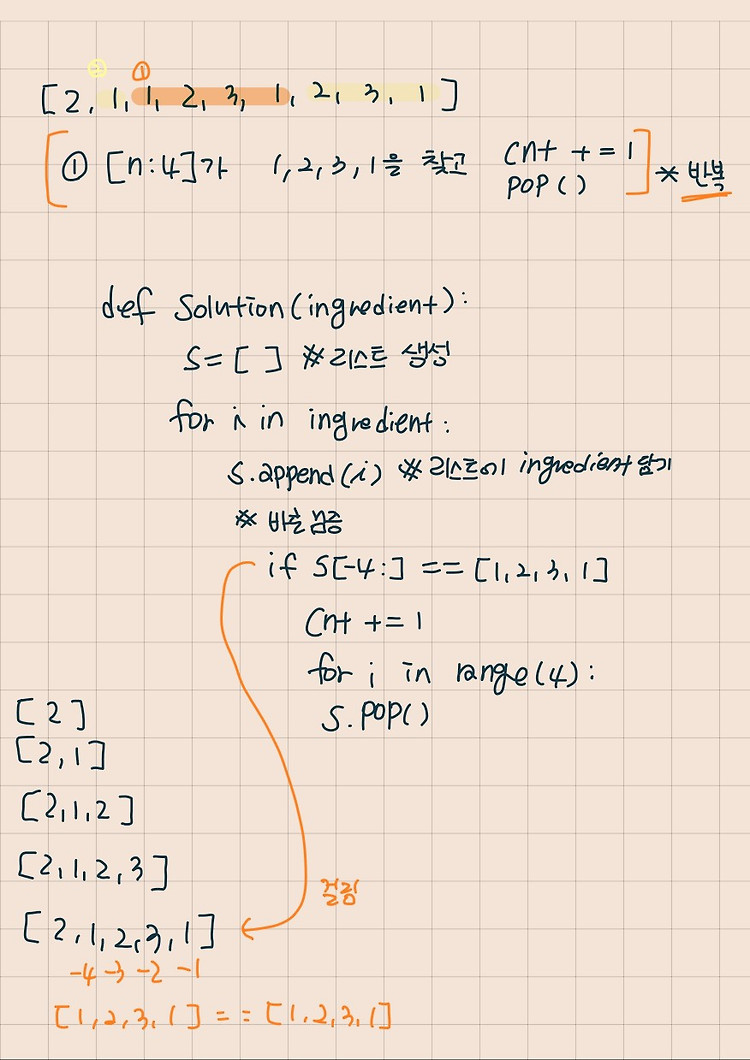 ② ①
[2, 1, 1, 2, 3, 1, 2, 3, 1]
① [n:4]가 1,2,3,1을 찾고 cnt += 1
pop() * 반복
def solution(ingredient):
S=[ ] #리스트 생성
for i in ingredient:
S.append(i) #리스트에 ingredient 담기
# 바로 검증
if S[-4:] == [1,2,3,1]
cnt += 1
for i in range(4):
S.pop()
[2]
[2,1]
[2,1,2]
[2,1,2,3]
걸림
[2,1,2,3,1]
-4 -3 -2 -1
[1,2,3,1] == [1,2,3,1]